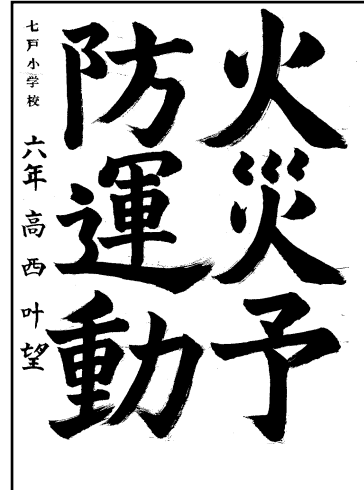 火災予
防運動
七戸小学校
六年 高西叶望